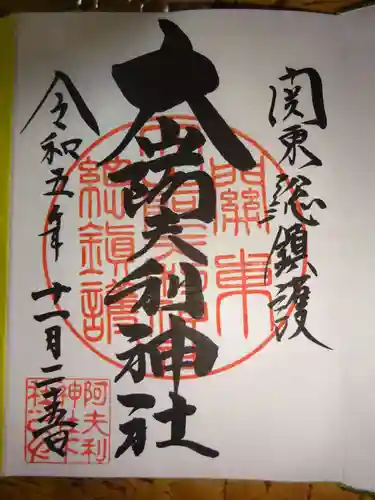 関東総鎮護
大山阿夫利神社
令和五年十一月二十五日
關東
總鎮護
阿夫利
神社